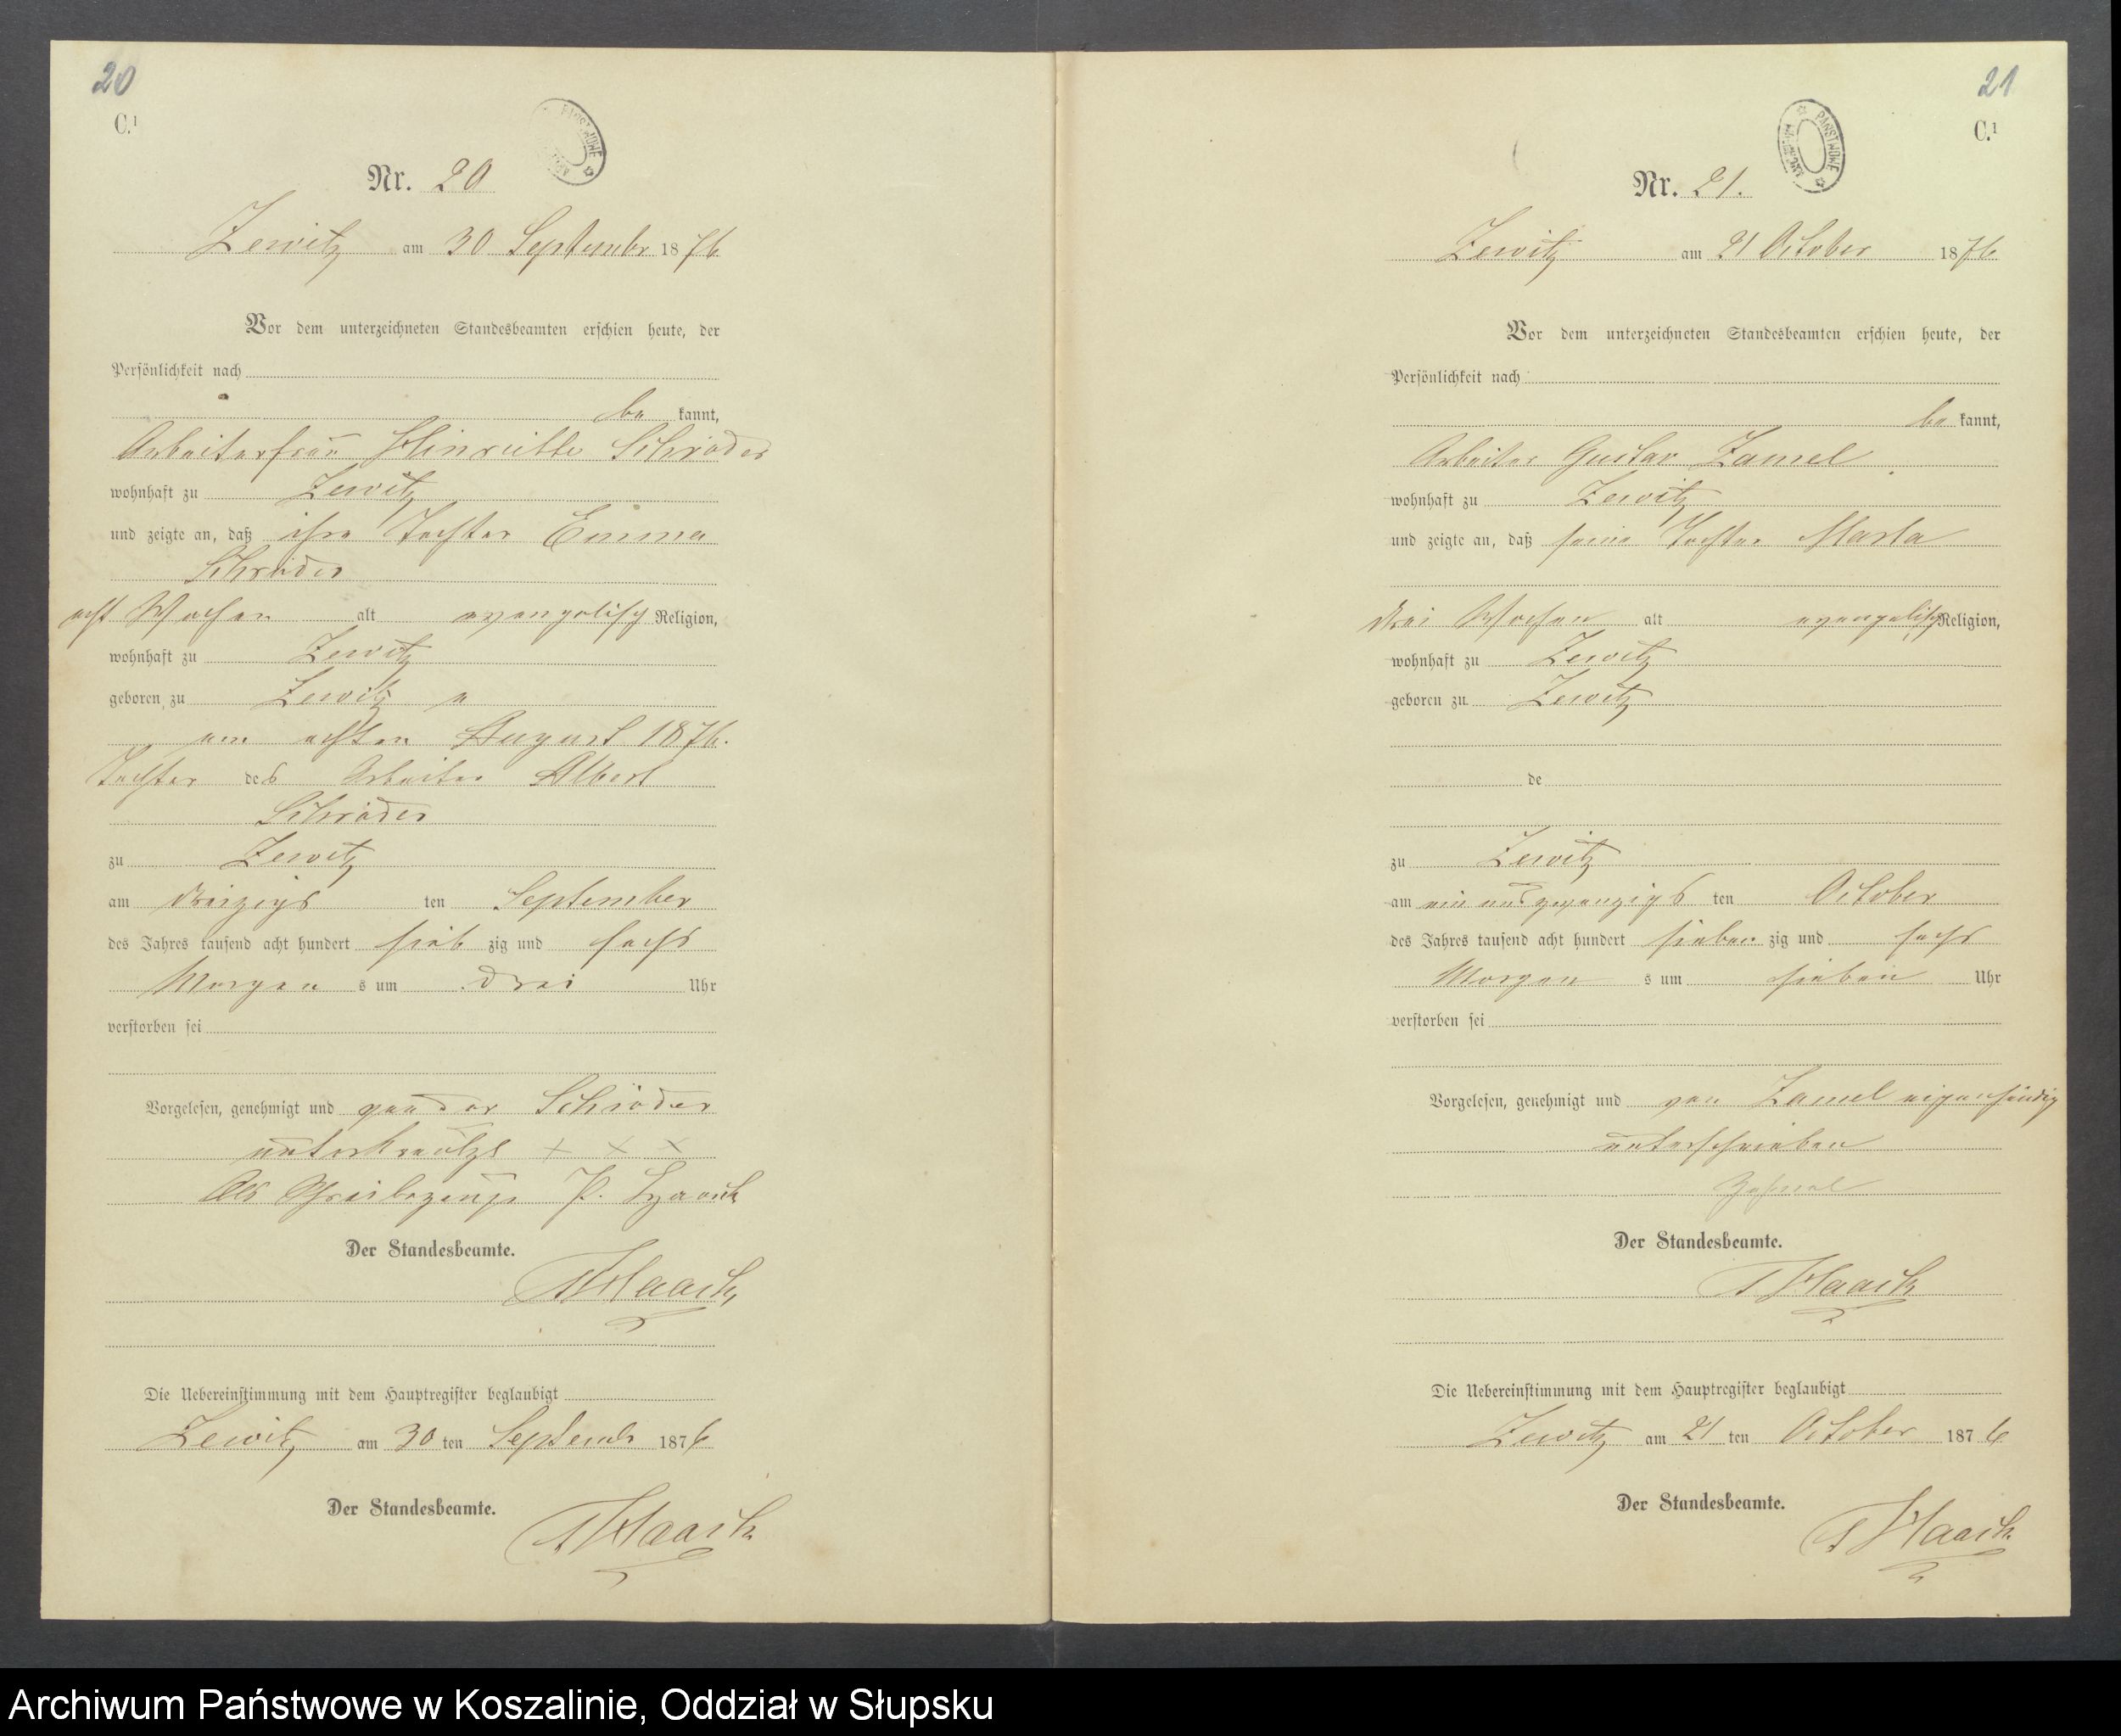 20
C.¹
PAŃSTWOWE
Nr. 20
Zewitz am 30 Septembr 1876
Vor dem unterzeichneten Standesbeamten erschien heute, der
Persönlichkeit nach
be kannt,
Arbeiterfrau Hinriette Schröder
wohnhaft zu Zewitz
und zeigte an, daß ihre Tochter Emma
Schröder
acht Wochen alt evangelisch Religion,
wohnhaft zu Zewitz
geboren zu Zewitz
am achten August 1876.
Tochter des Arbeiter Albert
Schröder
zu Zewitz
am dreizigs ten September
des Jahres tausend acht hundert sieb zig und sechs
Morgen s um drei Uhr
verstorben sei
Vorgelesen, genehmigt und von der Schröder
unterkreutzt + + +
Als Schreibezeuge P.
Der Standesbeamte.
Haack
Die Uebereinstimmung mit dem Hauptregister beglaubigt
Zewitz am 30 ten Septemb 1876
Der Standesbeamte.
Haack
21
C.¹
ARCHIWUM PAŃSTWOWE
Nr. 21.
Zewitz am 21 October 1876
Vor dem unterzeichneten Standesbeamten erschien heute, der
Persönlichkeit nach
be kannt,
Arbeiter Gustav Zamel
wohnhaft zu Zewitz
und zeigte an, daß seine Tochter Marta
drei Wochen alt evangelisch Religion,
wohnhaft zu Zewitz
geboren zu Zewitz
de
zu Zewitz
am ein und zwanzigs ten October
des Jahres tausend acht hundert sieben zig und sechs
Morgen s um sieben Uhr
verstorben sei
Vorgelesen, genehmigt und von Zamel eigenhändig
unterschrieben
Der Standesbeamte.
Haack
Die Uebereinstimmung mit dem Hauptregister beglaubigt
Zewitz am 21 ten October 1876
Der Standesbeamte.
Haack
Archiwum Państwowe w Koszalinie, Oddział w Słupsku